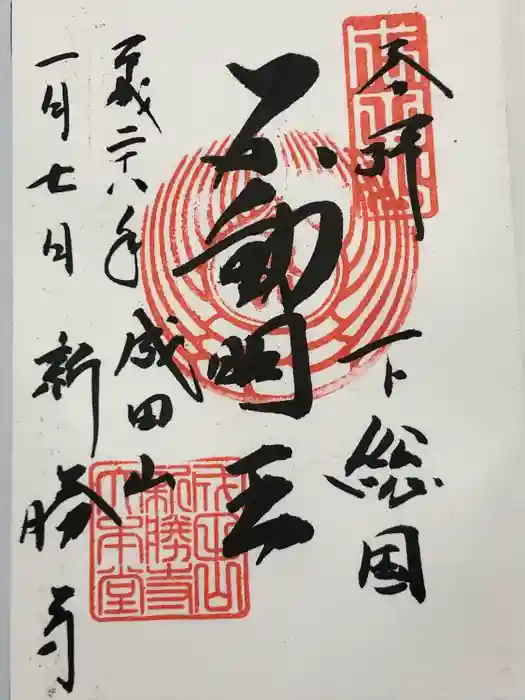 奉拝
下総国
不動明王
平成二十八年
成田山
一月七日
新勝寺
成田山
新勝寺
大本堂